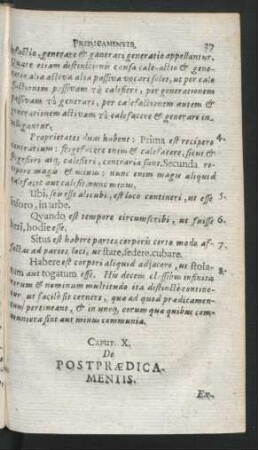 PRÆDICAMENTIS. 37
generare & generari generatio appellantur.
etiam distinctionis causa calefactio & gene-
ratio alia activa alia passiva vocari solet, ut per cale
factionem passivam τὸ calefieri, per generationem
passivam τὸ generari, per calefactionem autem &
generationem activam τὸ calefacere & generare in-
telligantur.
Proprietates duas habent: Prima est recipere 4.
contraria: frigefacere enim & calefacere, sicut &
frigefieri atq, calefieri, contraria sunt. Secunda re-
cipere magis & minus: nunc enim magis aliquid
calefacit aut calefit, nunc minus.
Ubi, seu esse alicubi, est loco contineri, ut esse 5.
in foro, in urbe.
Quando est tempore circumscribi, ut fuisse 6.
heri, hodie esse.
Situs est habere partes corporis certo modo af- 7.
fectas ad partes loci, ut stare, sedere, cubare.
Habere est corpori aliquid adjacere, ut stola- 8.
tum aut togatum esse. Hu decem classibus infinita
rerum & nominum multitudo ita distincte contine-
tur ut facile sit cernere, quæ ad quod prædicamen-
tum pertineant, & in unoq, eorum quæ quibus com-
munia sint aut minus communia.
CAPUT. X.
De
POSTPRÆDICA-
MENTIS.
Ex-